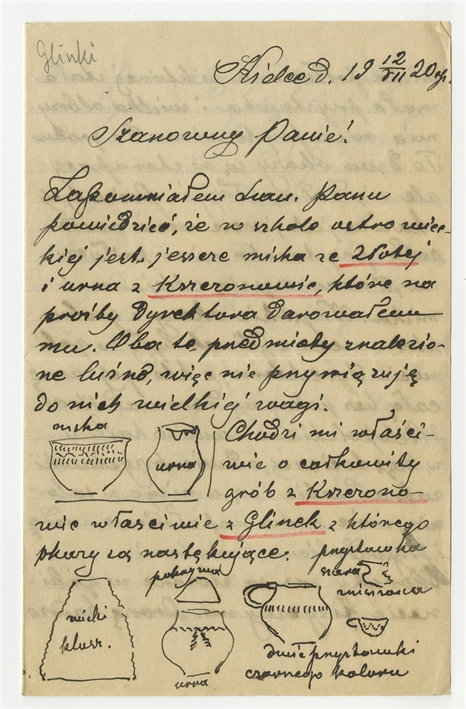 Glinki
Kielce d. 19 12/VII 20 r.
Szanowny Panie!
Zapomniałem Szan. Panu
powiedzieć, że w szkole ostrowiec-
kiej jest jeszcze miska ze Złotej
i urna z Krzczonowic, które na
prośby Dyrektora darowałem
mu. Oba te przedmioty znalezio-
ne luźno, więc nie przywiązuję
do nich wielkiej wagi.
miska
urna
Chodzi mi właści-
wie o całkowity
grób z Krzczono-
wic właściwie z Glinek z którego
okazy są następujące.
przystawka
szara
pokrywa
wielki
klosz.
urna
dwie przystawki
czarnego koloru